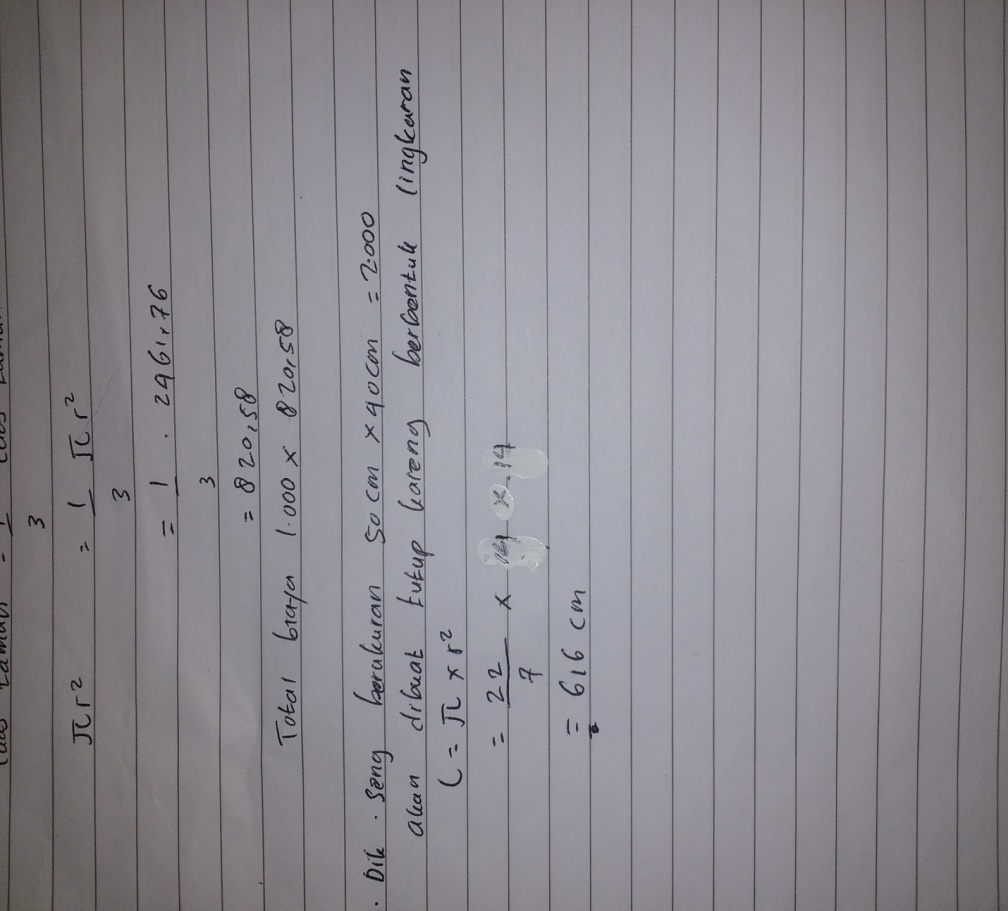 3
πr² = 1/3 πr²
= 1/3 . 2461,76
= 820,58
Total biaya 1.000 x 820,58
. Dik . Seng berukuran 50 cm x 40 cm = 2.000
akan dibuat tutup kareng berbentuk lingkaran
L = π x r²
= 22/7 x 14 x 14
= 616 cm